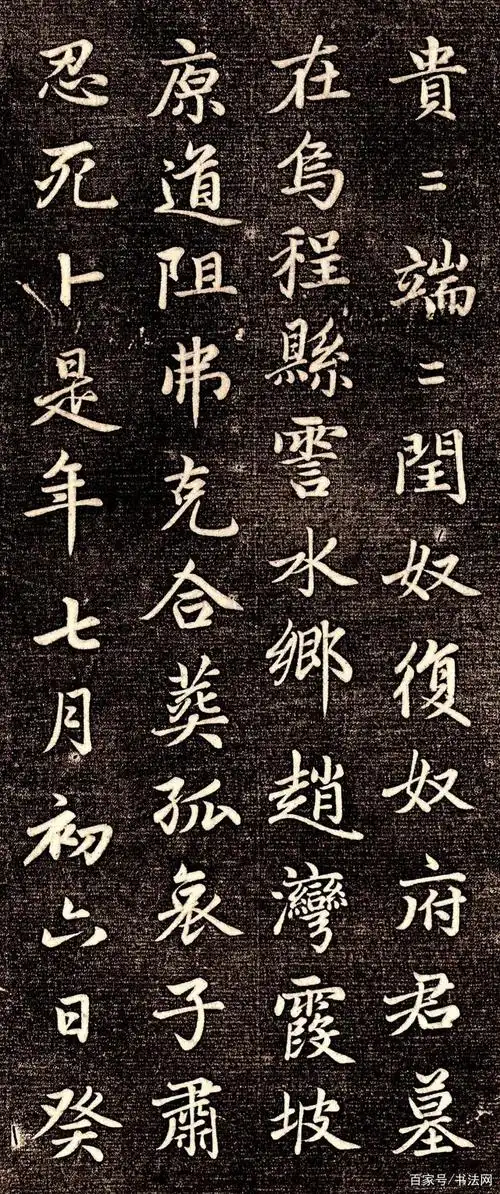 貴二端二閏奴復奴府君墓
在烏程縣霅水鄉趙灣霞坡
原道阻弗克合葬孤哀子肅
忍死卜是年七月初六日癸
百家号/书法网